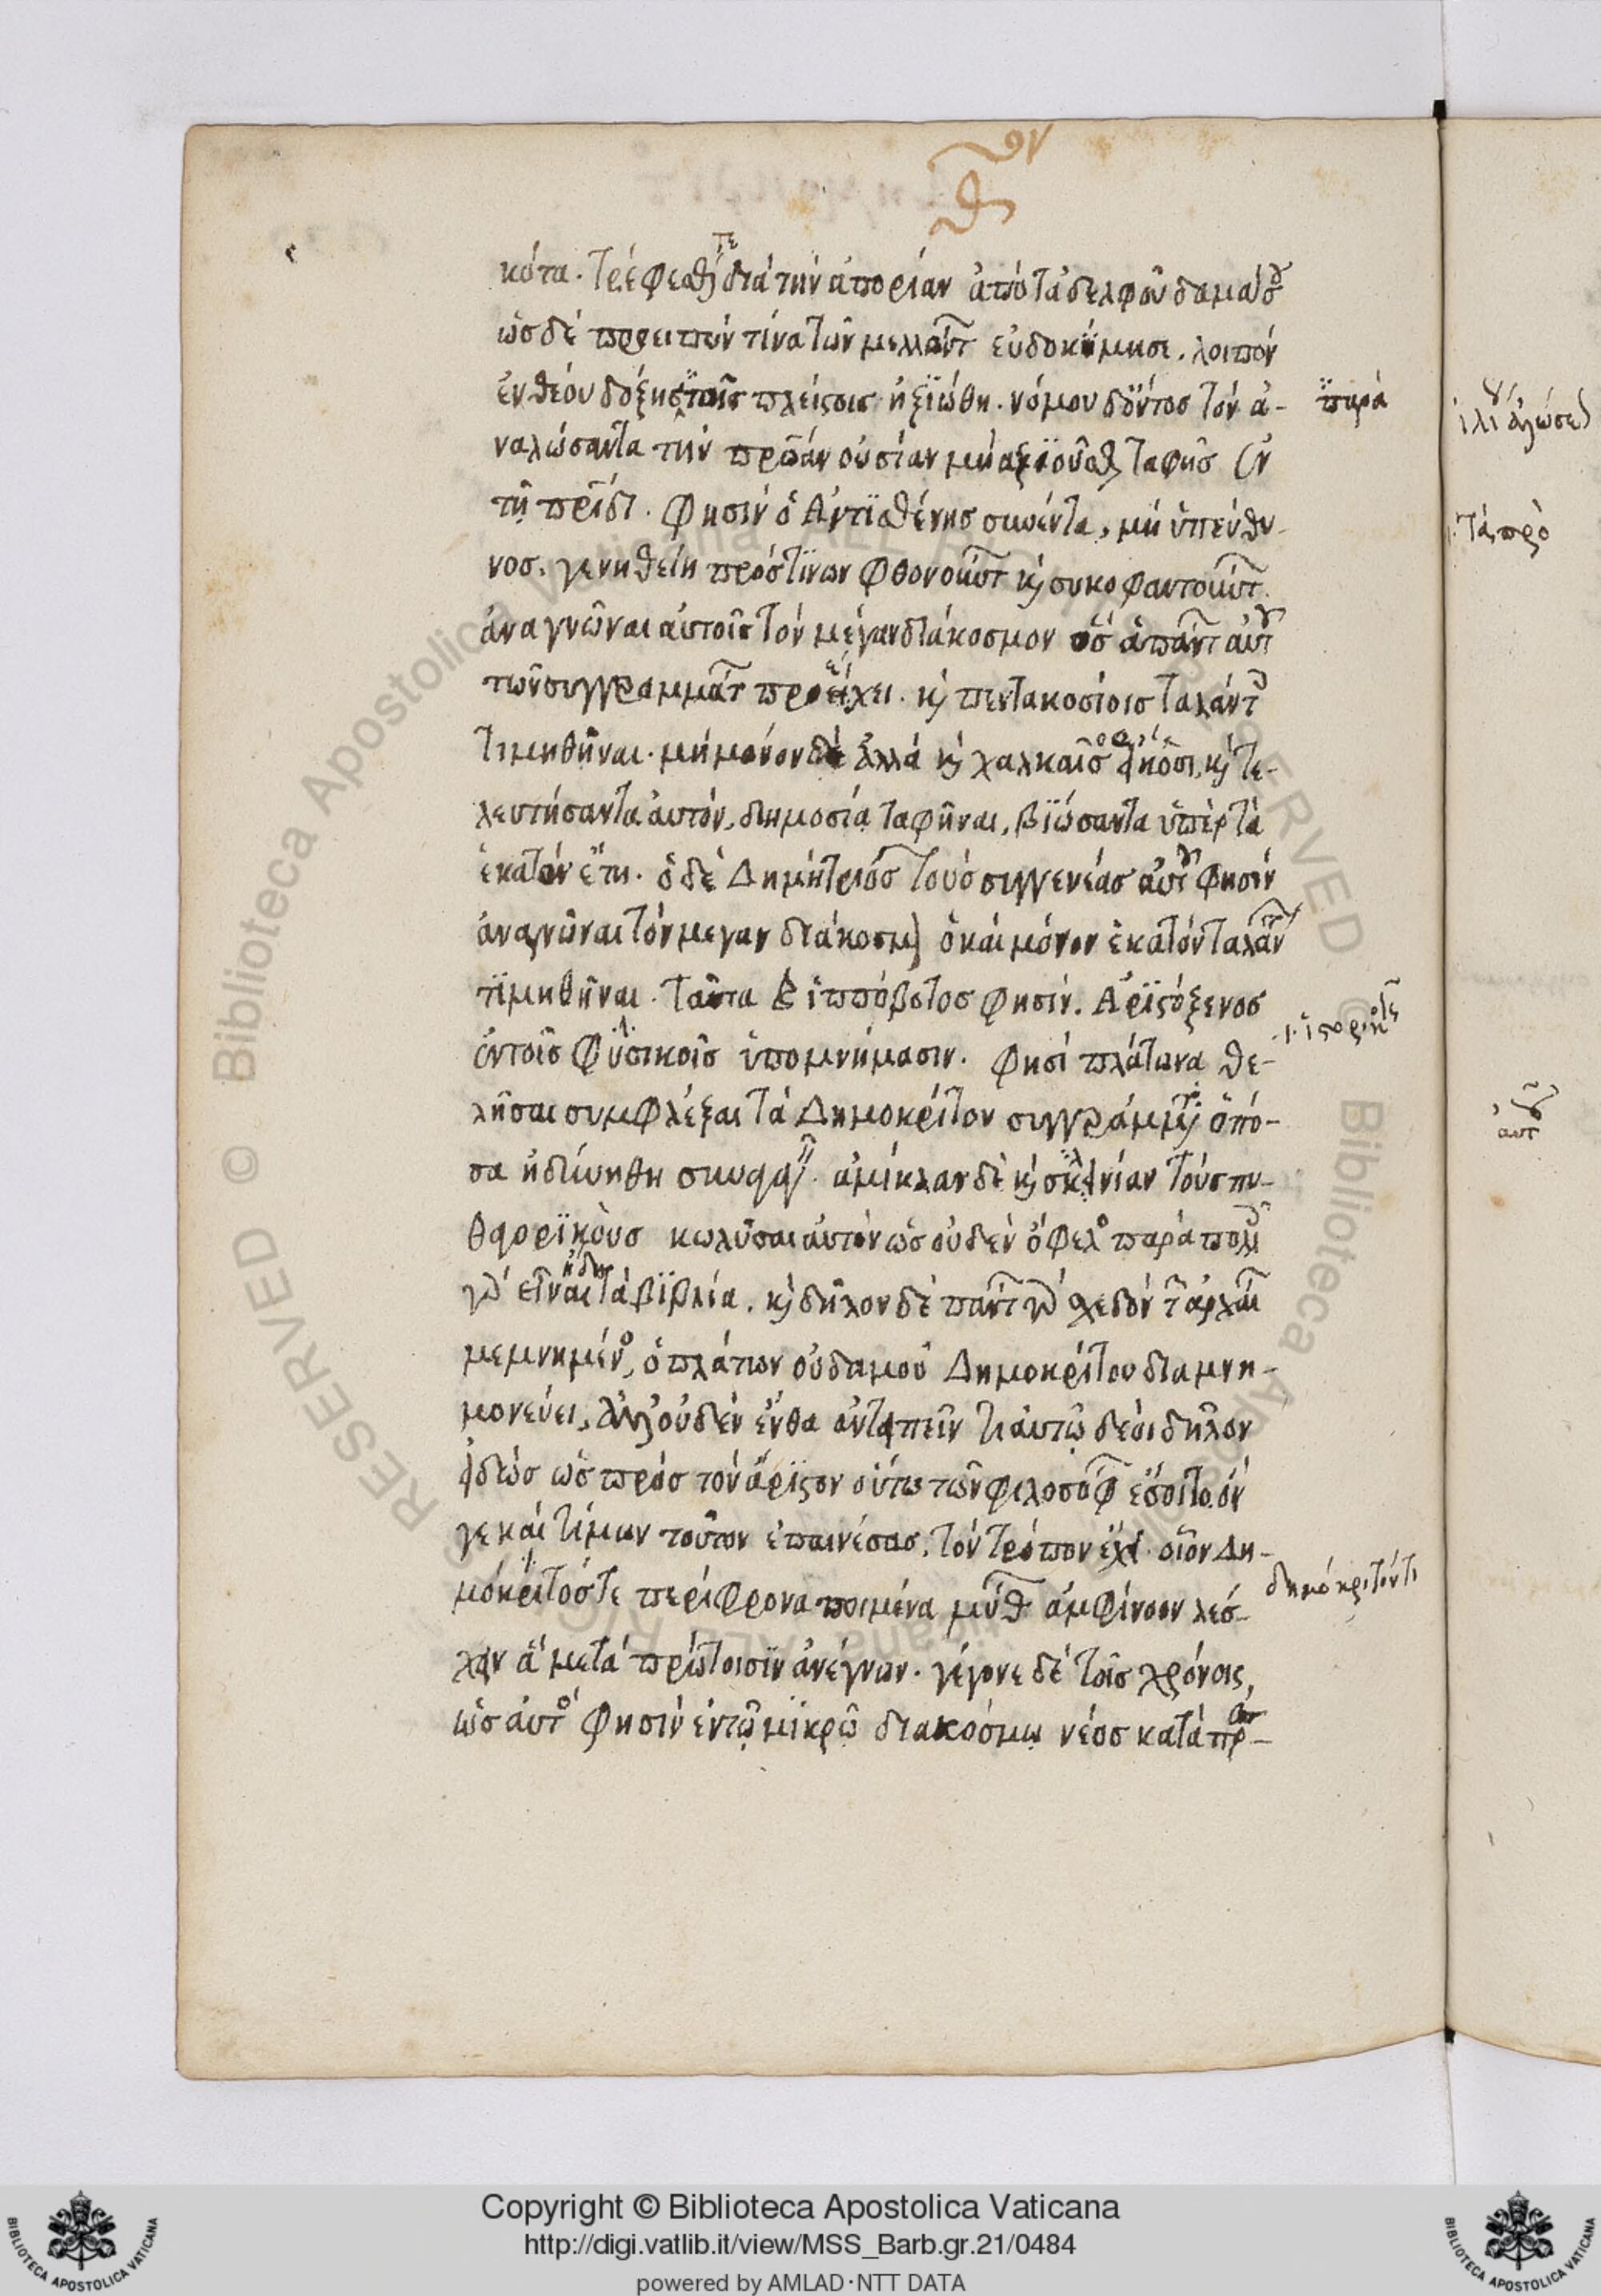 κότα. τρέφεσθαί τε διὰ τὴν ἀπορίαν ἀπὸ τἀδελφοῦ δαμάσου
ὡς δὲ προειπών τινα τῶν μελλόντων εὐδοκίμησε. λοιπὸν
ἐνθέου δόξης παρὰ τοῖς πλείστοις ἠξιώθη. νόμου δόντος τὸν ἀ-
ναλώσαντα τὴν πατρῴαν οὐσίαν μὴ ἀξιοῦσθαι ταφῆς ἐν
τῇ πατρίδι. φησὶν ὁ Ἀντισθένης συνέντα, μὴ ὑπεύθυ-
νος. γενηθείη πρός τινων φθονούντων καὶ συκοφαντούντων.
ἀναγνῶναι αὐτοῖς τὸν μέγαν διάκοσμον ὃς ἁπάντων αὐτοῦ
τῶν συγγραμμάτων προέχει. καὶ πεντακοσίοις ταλάντοις
τιμηθῆναι. μὴ μόνον δὲ ἀλλὰ καὶ χαλκαῖς εἰκόσι, καὶ τε-
λευτήσαντα αὐτόν, δημοσίᾳ ταφῆναι, βιώσαντα ὑπὲρ τὰ
ἑκατὸν ἔτη. ὁ δὲ Δημήτριος τοὺς συγγενέας αὐτοῦ φησὶν
ἀναγνῶναι τὸν μεγαν διάκοσμον ὃ καὶ μόνον ἑκατὸν ταλάντων
τιμηθῆναι. ταῦτα καὶ ἱππόβοτος φησίν. Ἀριστόξενος
ἐν τοῖς φυσικοῖς ὑπομνήμασιν. φησὶ πλάτωνα θε-
λῆσαι συμφλέξαι τὰ Δημοκρίτου συγγράμματα ὁπό-
σα ἠδυνήθη συναγαγεῖν. ἀμύκλαν δὲ καὶ κλινίαν τοὺς πυ-
θαγορικοὺς κωλῦσαι αὐτὸν ὡς οὐδὲν ὄφελος παρὰ πολλοῖς
γὰρ εἶναι ἤδη τὰ βιβλία. καὶ δῆλον δὲ πάντων γὰρ σχεδὸν τῶν ἀρχαίων
μεμνημένος, ὁ πλάτων οὐδαμοῦ Δημοκρίτου διαμνη-
μονεύει, ἀλλ' οὐδὲν ἔνθα ἀντειπεῖν τι αὐτῷ δέοι δῆλον
εἰδὼς ὡς πρὸς τὸν ἄριστον οὕτω τῶν φιλοσόφων ἔσοιτο ὅν
γε καὶ τίμων τοῦτον ἐπαινέσας, τὸν τρόπον ἔχει. οἷον Δη-
μόκριτόστε περίφρονα ποιμένα μύθων ἀμφίνοον λέσ-
χην ἃ μετὰ πρώτοισιν ἀνέγνων. γέγονε δὲ τοῖς χρόνοις,
ὡς αὐτὸς φησὶν ἐν τῷ μικρῷ διακόσμῳ νέος κατὰ πρεσ-
παρὰ
ἱστορικοῖς
δημόκριτόντε
τὰ πρὸ
αὐτοῦ
Copyright © Biblioteca Apostolica Vaticana
http://digi.vatlib.it/view/MSS_Barb.gr.21/0484
powered by AMLAD·NTT DATA